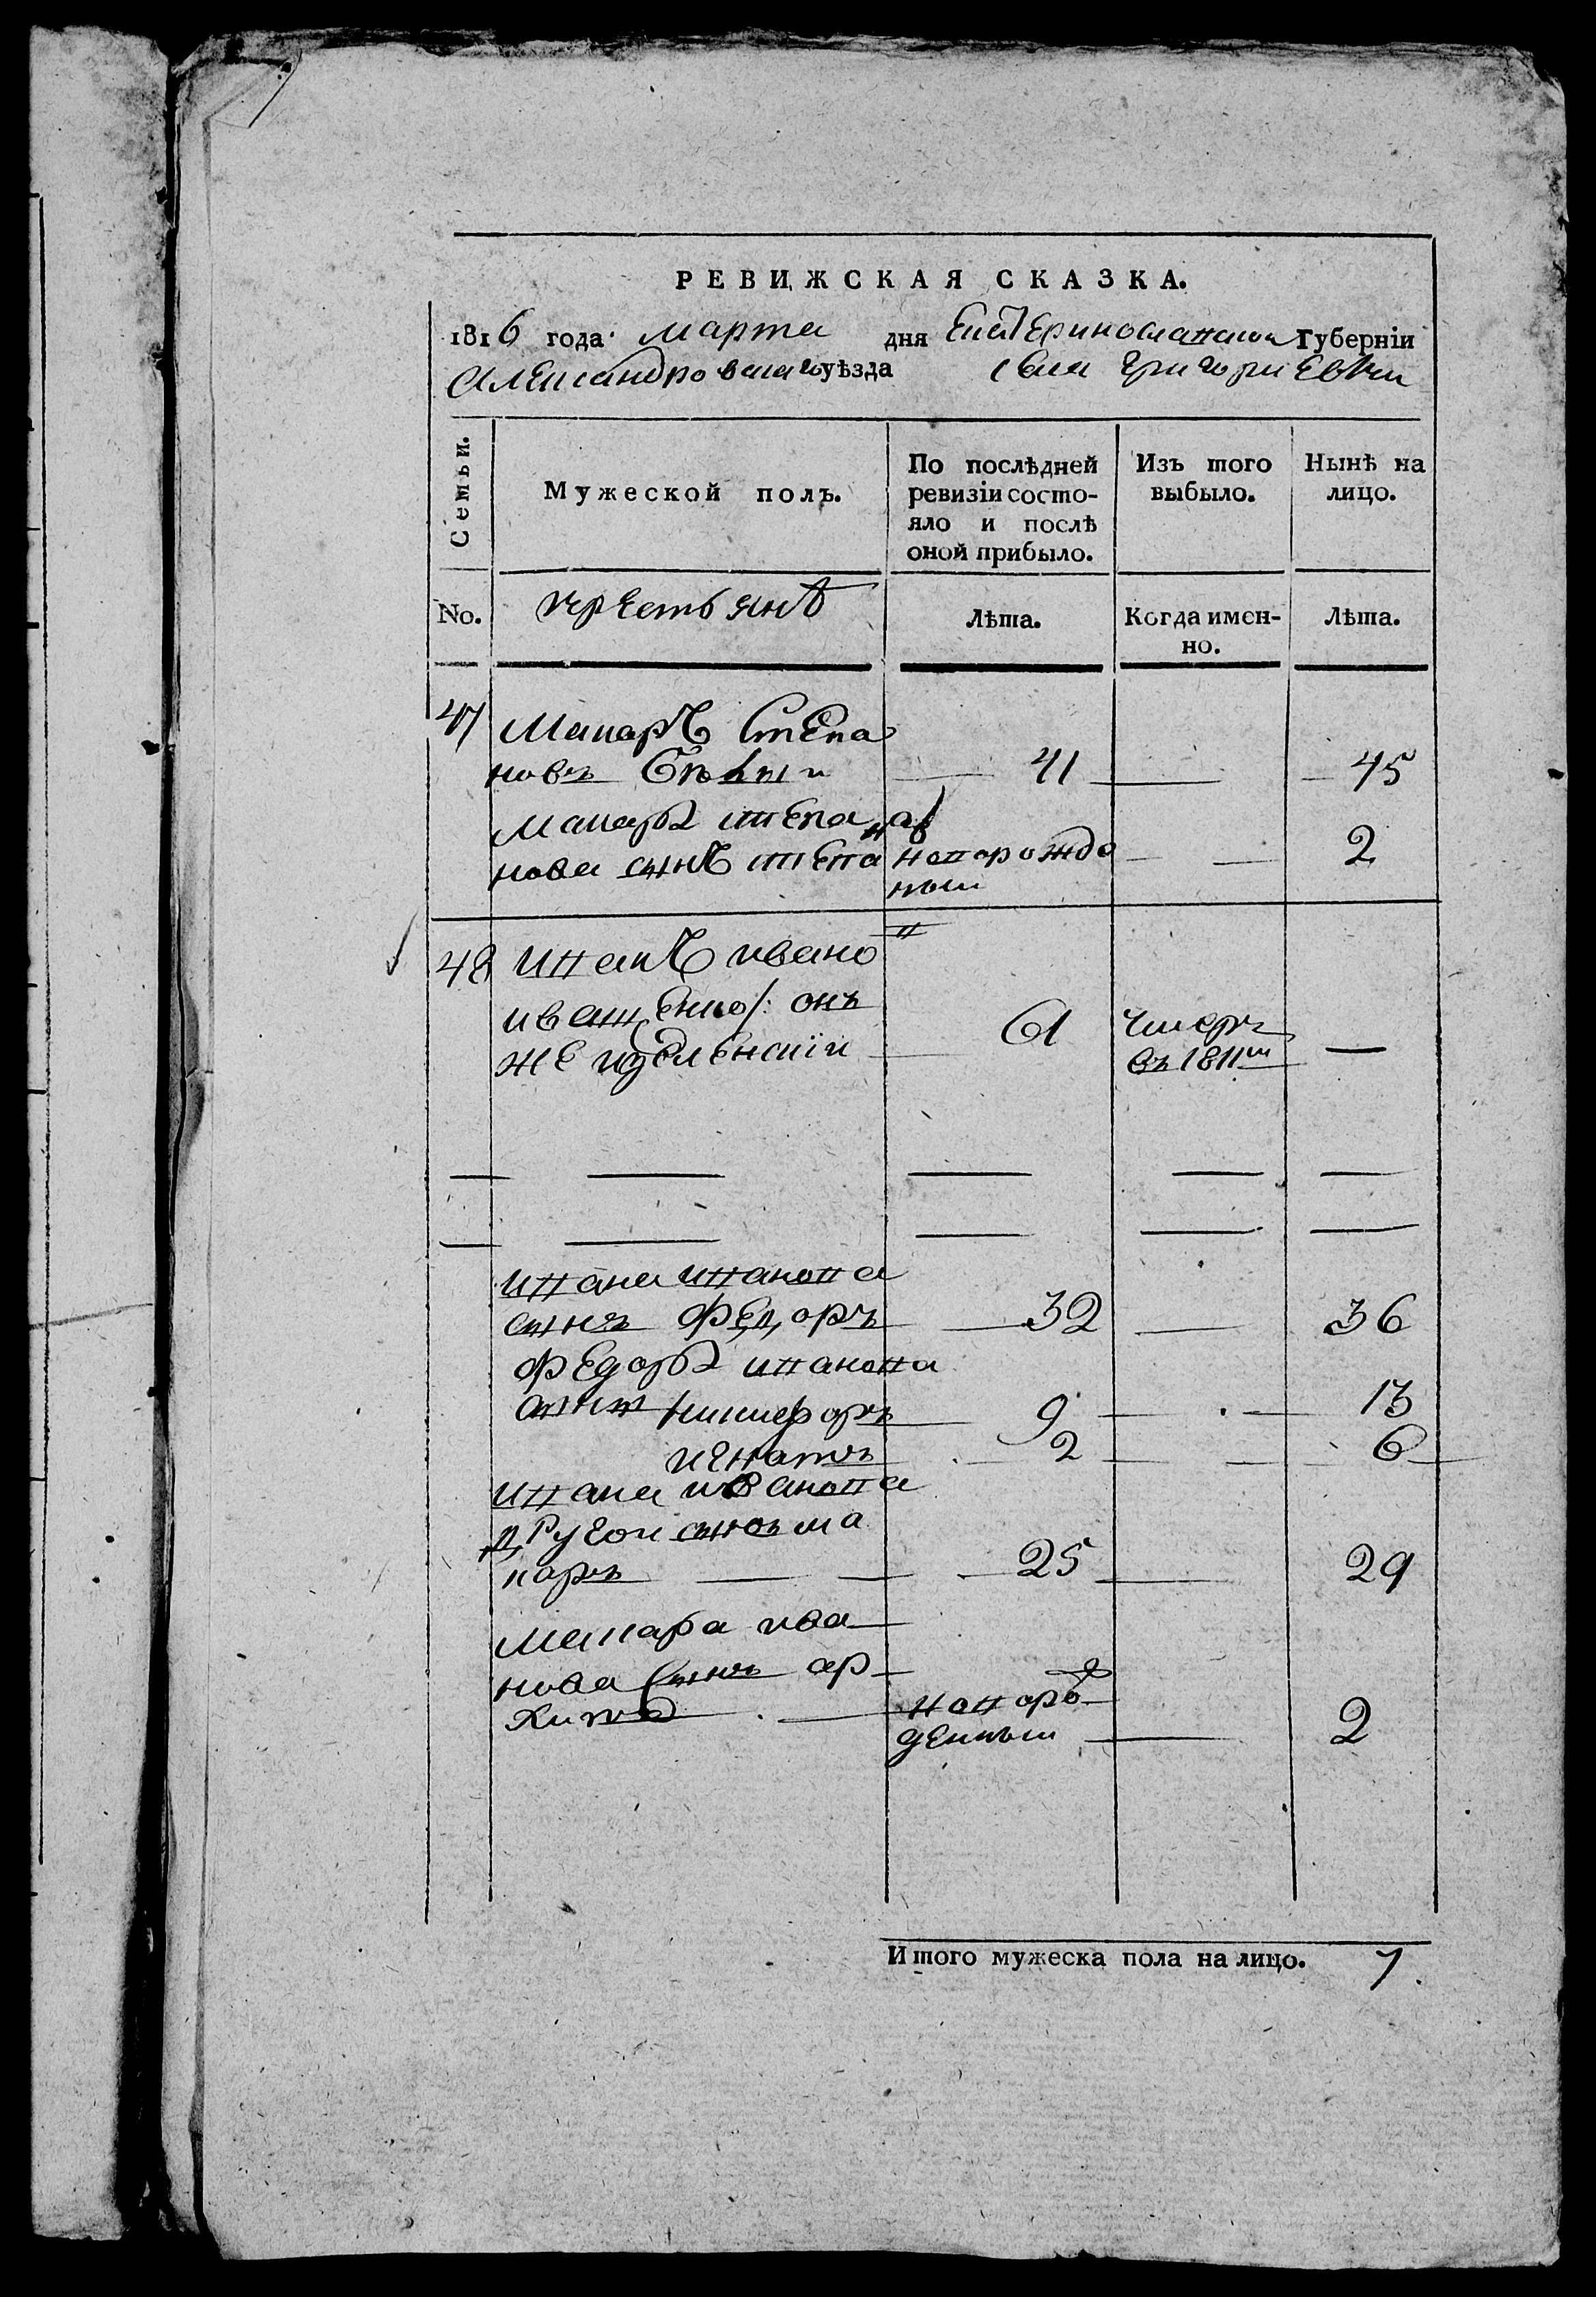 РЕВИЖСКАЯ СКАЗКА.
1816 года марта дня Екатеринославской Губернiи
Александровскаго уѣзда села Григориевки
Семьи.
Мужеской полъ.
По послѣдней
ревизiи состо-
яло и послѣ
оной прибыло.
Изъ того
выбыло.
Нынѣ на
лицо.
No.
крестьянѣ
Лѣта.
Когда имен-
но.
Лѣта.
47 Макаръ Степа
новъ 41 45
Макара степа
нова сынъ степа новорождо 2
ной
48 иванъ ивано
иващенко /: онъ 61 умеръ
же въ 1811м
ивана иванова
сынъ Федоръ 32 36
Федора иванова
сынъ никифоръ 9 13
игнатъ 2 6
ивана иванова
другои сынъ ма
каръ 25 29
макара ива
нова сынъ ар
хипъ новорож
денный 2
Итого мужеска пола на лицо. 7.